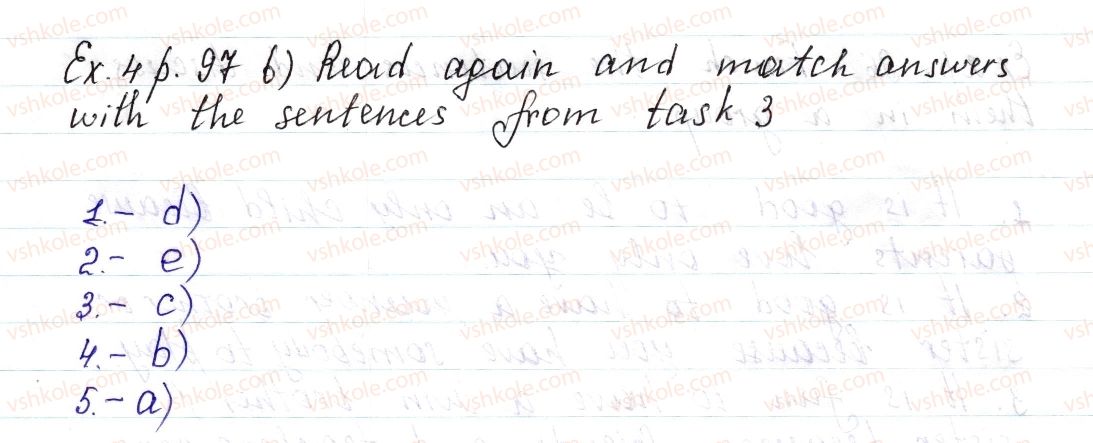 Ex. 4 p. 97 b) Read again and match answers
with the sentences from task 3
1. - d)
2. - e)
3. - c)
4. - b)
5. - a)